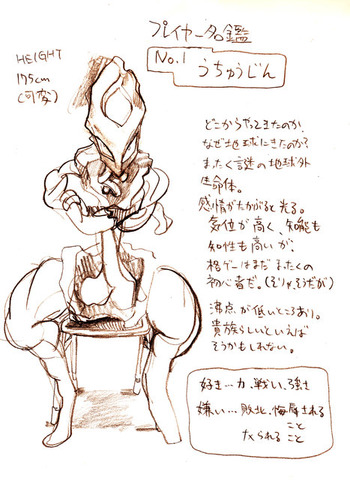 プレイヤー名鑑
No.1 うちゅうじん
HEIGHT
175cm
(可変)
どこからやってきたのか、
なぜ地球にきたのか?
まったく謎の地球外
生命体。
感情がたかぶると光る。
気位が高く、知能も
知性も高いが、
格ゲーはまだまったくの
初心者だ。(そりゃそうだが)
沸点が低いところあり。
貴族らしいといえば
そうかもしれない。
好き…力、戦い、強さ
嫌い…敗北、侮辱される
こと
なめられること